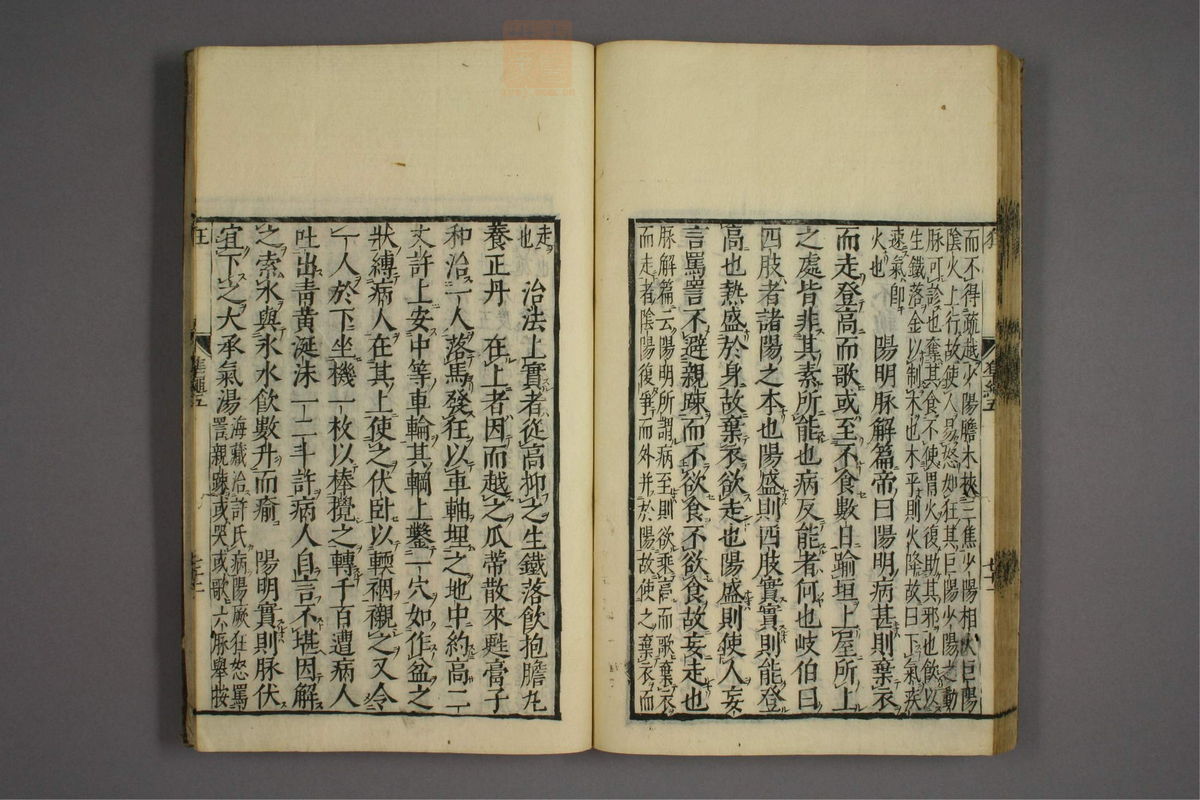 而不得疏越少陽膽木挾三焦少陽相火巨陽
陰火上行故使人易怒如狂其巨陽少陽之動
脉可診也奪其食不使胃火復助其邪也飲以
生鐵落金以制木也木平則火降故曰下氣疾
速氣卽
火也　陽明脉解篇帝曰陽明病甚則棄衣
而走登高而歌或至不食數日踰垣上屋所上
之處皆非其素所能也病反能者何也岐伯曰
四肢者諸陽之本也陽盛則四肢實實則能登
高也熱盛於身故棄衣欲走也陽盛則使人妄
言罵詈不避親疎而不欲食不欲食故妄走也
脉解篇云陽明所謂病至則欲乘高而歌棄衣
而走者陰陽復爭而外并於陽故使之棄衣而
走
也　治法上實者從高抑之生鐵落飲抱膽丸
養正丹　在上者因而越之瓜蒂散來甦膏子
和治一人落馬發狂以車軸埋之地中約高二
丈許上安中等車輪其輞上鑿一穴如作盆之
狀縛病人在其上使之伏臥以輭裀襯之又令
一人於下坐機一枚以棒攪之轉千百遭病人
吐出青黃涎沫一二斗許病人自言不堪因解
之索水與氷水飲數升而瘉　陽明實則脉伏
宜下之大承氣湯
海藏治許氏病陽厥狂怒罵
詈親疎或哭或歌六脉舉按